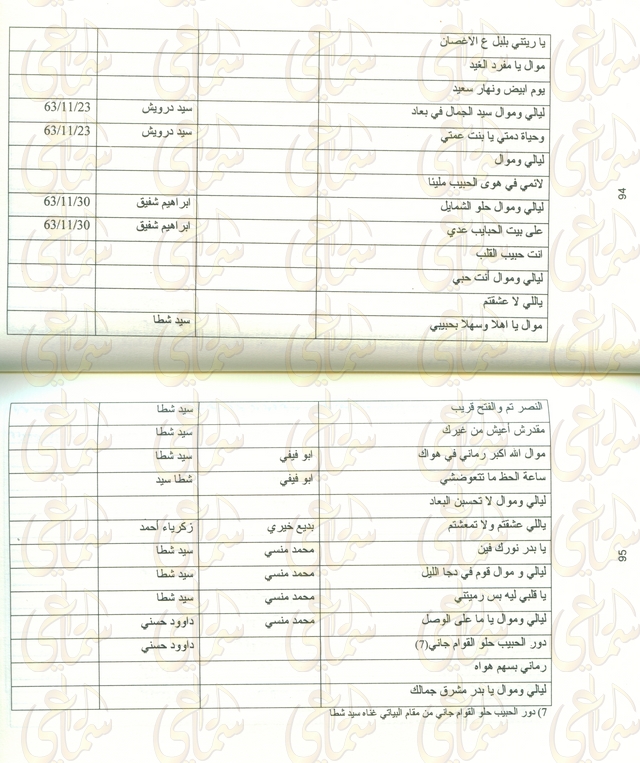 يا ريتني بلبل ع الاغصان
موال يا مفرد الغيد
يوم ابيض ونهار سعيد
ليالي وموال سيد الجمال في بعاد سيد درويش 63/11/23
وحياة دمتي يا بنت عمتي سيد درويش 63/11/23
ليالي وموال
لاتمي في هوى الحبيب ملينا
ليالي وموال حلو الشمايل ابراهيم شفيق 63/11/30
على بيت الحبايب عدي ابراهيم شفيق 63/11/30
انت حبيب القلب
ليالي وموال أنت حبي
ياللي لا عشقتم
موال يا اهلا وسهلا بحبيبي سيد شطا
94
النصر تم والفتح قريب سيد شطا
مقدرش أعيش من غيرك سيد شطا
موال الله اكبر رماني في هواك ابو فيفي سيد شطا
ساعة الحظ ما تتعوضشي ابو فيفي شطا سيد
ليالي وموال لا تحسبن البعاد
ياللي عشقتم ولا تمعشتم بديع خيري زكرياء أحمد
يا بدر نورك فين محمد منسي سيد شطا
ليالي و موال قوم في دجا الليل محمد منسي سيد شطا
يا قلبي ليه بس رميتني محمد منسي سيد شطا
ليالي وموال يا ما على الوصل محمد منسي داوود حسني
دور الحبيب حلو القوام جاني(7) داوود حسني
رماني بسهم هواه
ليالي وموال يا بدر مشرق جمالك
7) دور الحبيب حلو القوام جاني من مقام البياتي غناه سيد شطا
95
سماعي